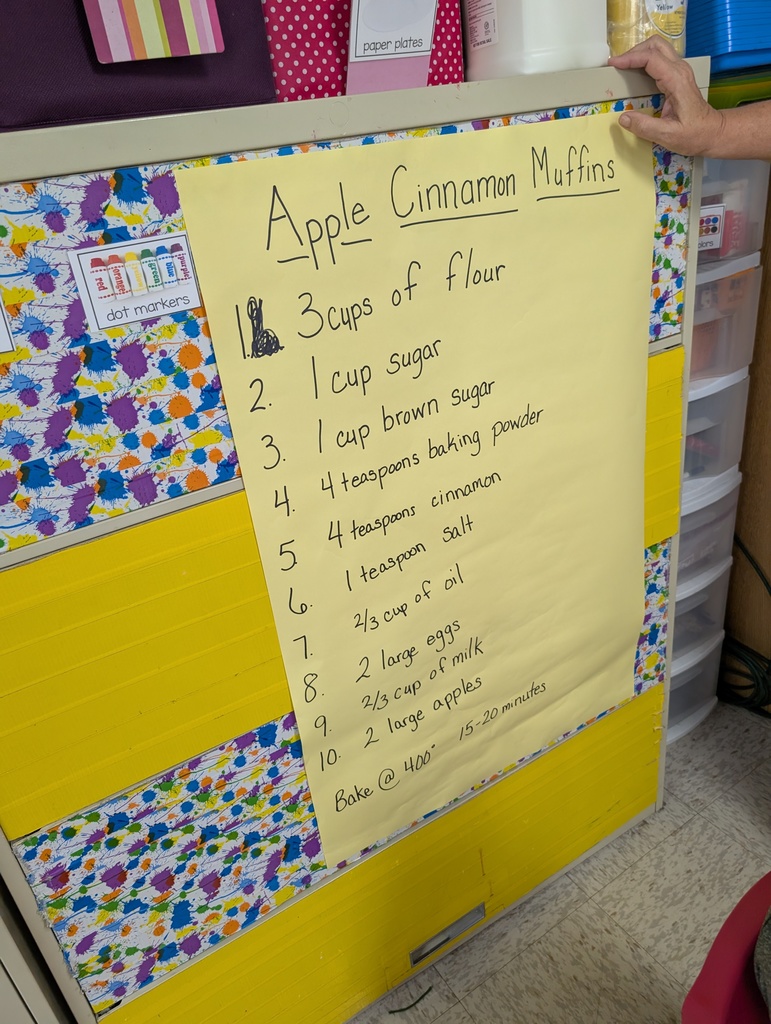 Yellow
paper plates
Apple Cinnamon Muffins
1. 3 cups of flour
2. 1 cup sugar
3. 1 cup brown sugar
4. 4 teaspoons baking powder
5. 4 teaspoons cinnamon
6. 1 teaspoon salt
7. 2/3 cup of oil
8. 2 large eggs
9. 2/3 cup of milk
10. 2 large apples
Bake @ 400° 15-20 minutes
red orange yellow green blue purple
dot markers